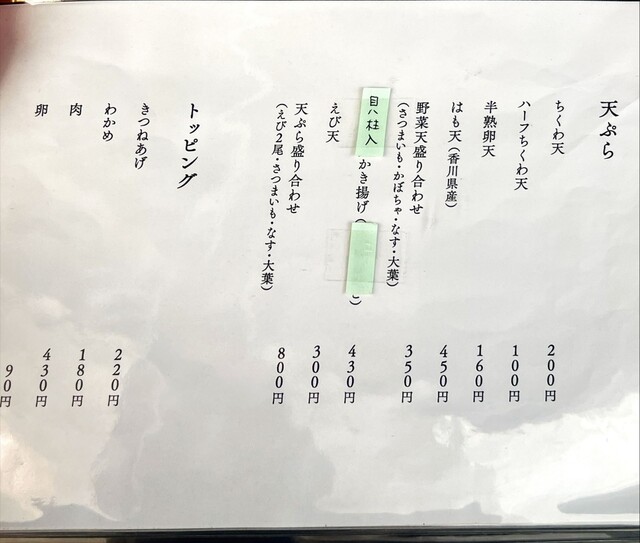 天ぷら
ちくわ天 200円
ハーフちくわ天 100円
半熟卵天 160円
はも天(香川県産) 450円
野菜天盛り合わせ 350円
(さつまいも・かぼちゃ・なす・大葉)
貝柱入 かき揚げ( ) 430円
えび天 300円
天ぷら盛り合わせ 800円
(えび2尾・さつまいも・なす・大葉)
トッピング
きつねあげ 220円
わかめ 180円
肉 430円
卵 90円